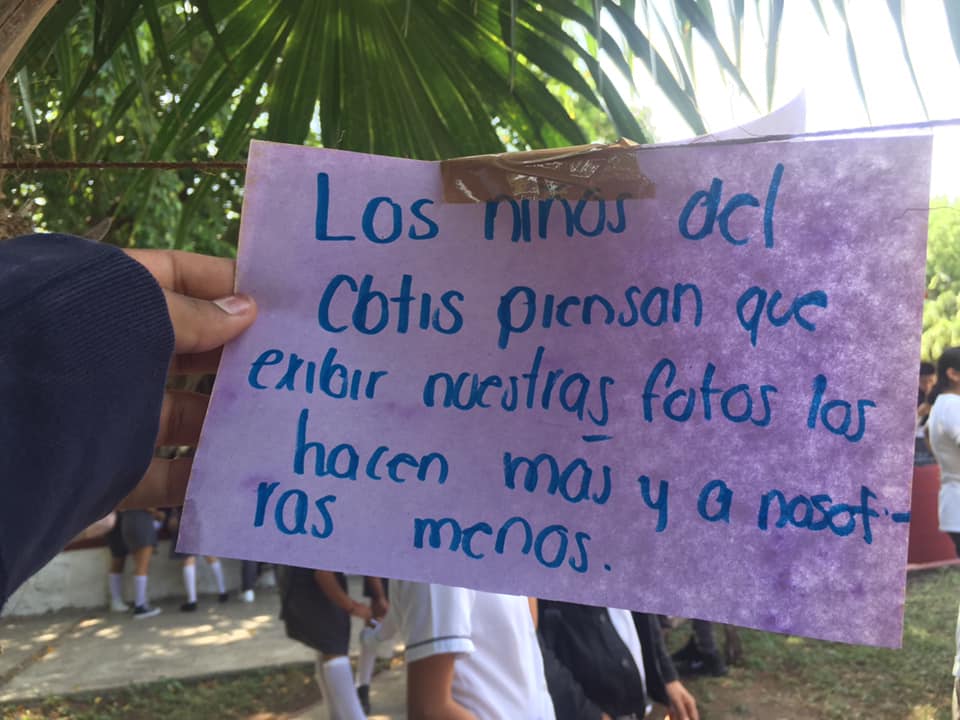 Los niños del
Cbtis piensan que
exibir nuestras fotos los
hacen más y a nosot-
ras menos.